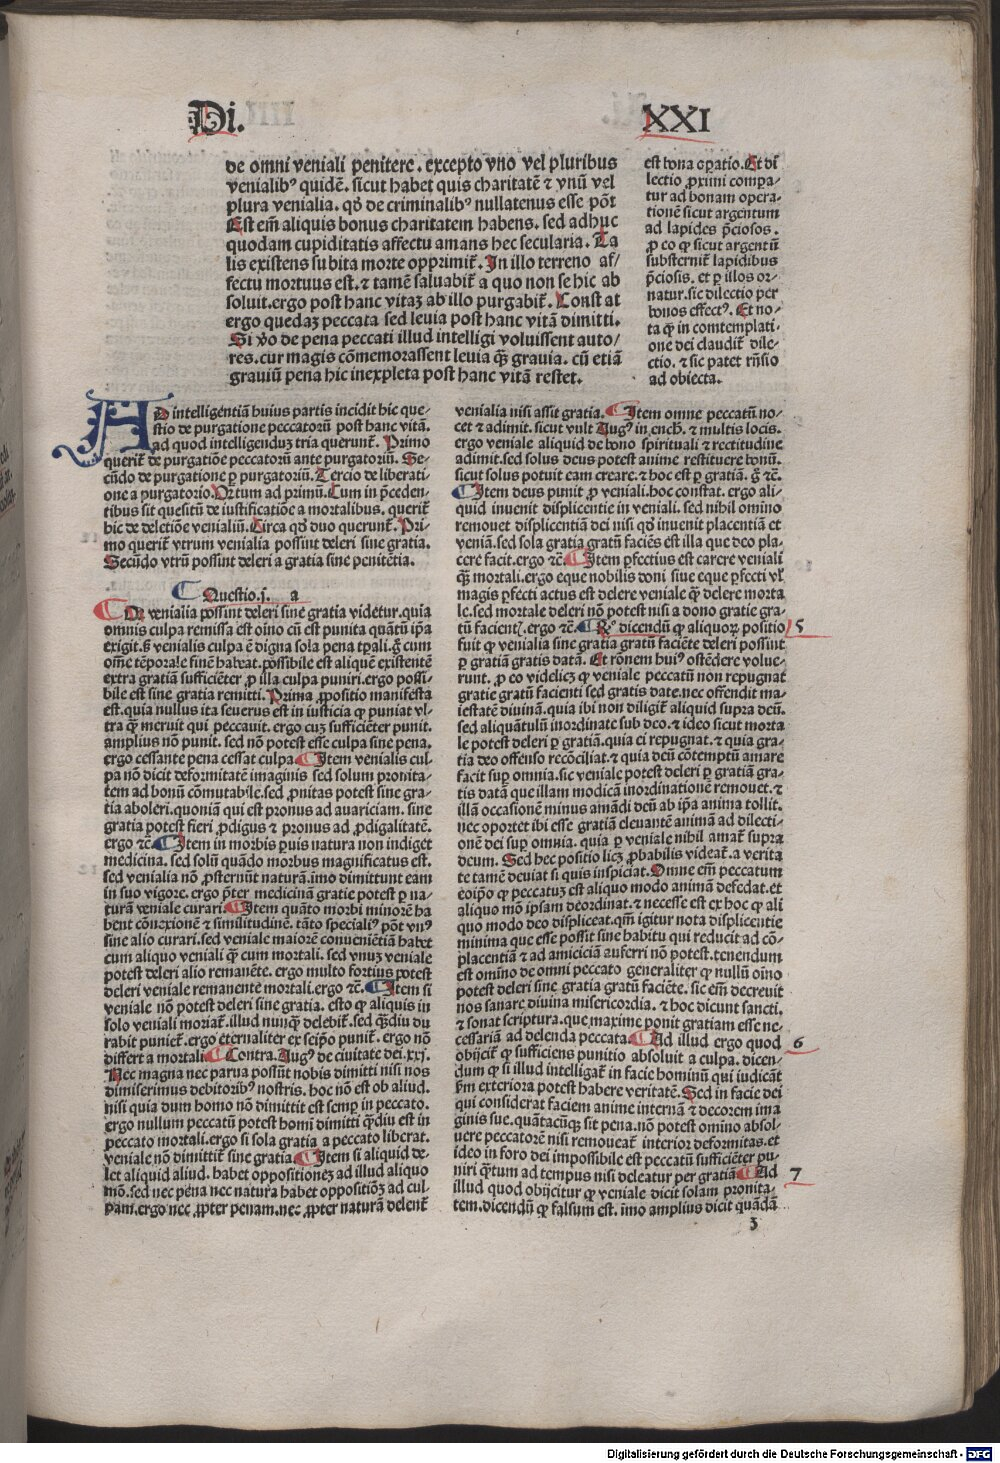 Di.
XXI
de omni veniali penitere. excepto vno vel pluribus
venialibꝰ quidē. sicut habet quis charitatē ⁊ vnū vel
plura venialia. qđ de criminalibꝰ nullatenus esse pōt
Est em̄ aliquis bonus charitatem habens. sed adhuc
quodam cupiditatis affectu amans hec secularia. Ta
lis existens subita morte opprimit̄. In illo terreno af⸗
fectu mortuus est. ⁊ tamē saluabit̄ a quo non se hic ab
soluit. ergo post hanc vitaꝫ ab illo purgabit̄. Constat
ergo quedaꝫ peccata sed leuia post hanc vitā dimitti.
Si v̄o de pena peccati illud intelligi voluissent auto⸗
res. cur magis cōmemorassent leuia qꝫ̄ grauia. cū etiā
grauiū pena hic inexpleta post hanc vitā restet.
est bona oꝑatio. Et di
lectio ꝓximi compa⸗
tur ad bonam opera⸗
tionē sicut argentum
ad lapides p̄ciosos.
ꝓ eo ꝙ sicut argentū
substernit̄ lapidibus
p̄ciosis. et ꝑ illos or⸗
natur. sic dilectio per
bonos effectꝰ. Et no⸗
ta ꝙ in comtemplati⸗
one dei claudit̄ dile⸗
ctio. ⁊ sic patet rn̄sio
ad obiecta.
AD intelligentiā huius partis incidit hic que⸗
stio de purgatione peccatorū post hanc vitā.
ad quod intelligenduꝫ tria querunt̄. Primo
querit̄ de purgatiōe peccatorū ante purgatoriū. Se⸗
cūdo de purgatione ꝑ purgatoriū. Tercio de liberati⸗
one a purgatorio. Quātum ad primū. Cum in p̄ceden⸗
tibus sit quesitū de iustificatiōe a mortalibus. querit̄
hic de deletiōe venialiū. Circa qđ duo querunt̄. Pri⸗
mo querit̄ vtrum venialia possint deleri sine gratia.
Secūdo vtrū possint deleri a gratia sine penitētia.
¶ Questio.j. a
¶ Qđ venialia possint deleri sine gratia videtur. quia
omnis culpa remissa est oīno cū est punita quātū ip̄a
exigit. s̄ꝫ venialis culpa ē digna sola pena tꝑali. ḡ cum
om̄e tēporale finē habeat. possibile est aliquē existentē
extra gratiā sufficiēter ꝓ illa culpa puniri. ergo possi⸗
bile est sine gratia remitti. Prima ꝓpositio manifesta
est. quia nullus ita seuerus est in iusticia ꝙ puniat vl⸗
tra qꝫ̄ meruit qui peccauit. ergo cuꝫ sufficiēter punit.
amplius nō punit. sed nō potest esse culpa sine pena.
ergo cessante pena cessat culpa ¶ Item venialis cul⸗
pa nō dicit deformitatē imaginis sed solum pronita⸗
tem ad bonū cōmutabile. sed ꝓnitas potest sine gra⸗
tia aboleri. quoniā qui est pronus ad auariciam. sine
gratia potest fieri ꝓdigus ⁊ pronus ad ꝓdigalitatē.
ergo ⁊c̄. ¶ Item in morbis ꝑuis natura non indiget
medicina. sed solū quādo morbus magnificatus est.
sed venialia nō ꝓsternūt naturā. imo dimittunt eam
in suo vigore. ergo p̄ter medicinā gratie potest ꝑ na⸗
turā veniale curari. ¶ Item quāto morbi minorē ha
bent cōnexionē ⁊ similitudinē. tāto specialiꝰ pōt vnꝰ
sine alio curari. sed veniale maiorē conueniētiā habet
cum aliquo veniali qꝫ̄ cum mortali. sed vnuꝫ veniale
potest deleri alio remanēte. ergo multo fortius potest
deleri veniale remanente mortali. ergo ⁊c̄. ¶ Item si
veniale nō potest deleri sine gratia. esto ꝙ aliquis in
solo veniali moriat̄. illud nunqꝫ̄ delebit̄. sed qꝫ̄diu du
rabit puniet̄. ergo eternaliter ex se ipso puniet̄. ergo nō
differt a mortali ¶ Contra. Augꝰ de ciuitate dei.xxj.
Nec magna nec parua possūt nobis dimitti nisi nos
dimiserimus debitoribꝰ nostris. hoc nō est ob aliud.
nisi quia dum homo nō dimittit est semꝑ in peccato.
ergo nullum peccatū potest homī dimitti qꝫ̄diu est in
peccato mortali. ergo si sola gratia a peccato liberat.
veniale nō dimittit̄ sine gratia ¶ Item si aliquid de⸗
let aliquid aliud. habet oppositioneꝫ ad illud aliquo
mō. sed nec pena nec natura habet oppositiōꝫ ad cul⸗
pam. ergo nec ꝓpter penam. nec ꝓpter naturā delent̄
venialia nisi assit gratia. ¶ Item omne peccatū no⸗
cet ⁊ adimit. sicut vult Augꝰ in ench̄. ⁊ multis locis.
ergo veniale aliquid de bono spirituali ⁊ rectitudine
adimit. sed solus deus potest anime restituere bonū.
sicut solus potuit eam creare. ⁊ hoc est ꝑ gratiā. ḡ ⁊c̄.
¶ Item deus punit ꝓ veniali. hoc constat. ergo ali⸗
quid inuenit displicentie in veniali. sed nihil omino
remouet displicentiā dei nisi qđ inuenit placentiā et
veniā. sed sola gratia gratū faciēs est illa que deo pla⸗
cere facit. ergo ⁊c̄. ¶ Item ꝑfectius est carere veniali
qꝫ̄ mortali. ergo eque nobilis doni siue eque ꝑfecti vl̓
magis ꝑfecti actus est delere veniale qꝫ̄ delere morta
le. sed mortale deleri nō potest nisi a dono gratie gra⸗
tū facientꝭ. ergo ⁊c̄. ¶ Rꝰ. dicendū ꝙ aliquoꝝ positio
5
fuit ꝙ venialia sine gratia gratū faciēte deleri possint
ꝑ gratiā gratis datā. Et rōnem huiꝰ ostēdere volue⸗
runt. ꝓ eo videlicꝫ ꝙ veniale peccatū non repugnat
gratie gratū facienti sed gratis date. nec offendit ma⸗
iestatē diuinā. quia ibi non diligit̄ aliquid supra deū.
sed aliquātulū inordinate sub deo. ⁊ ideo sicut morta
le potest deleri ꝑ gratiā. quia ei repugnat. ⁊ quia gra⸗
tia deo offenso recōciliat. ⁊ quia deū cōtemptū amare
facit suꝑ omnia. sic veniale potest deleri ꝑ gratiā gra⸗
tis datā que illam modicā inordinationē remouet. ⁊
illā occasionē minus amādi deū ab ip̄a anima tollit.
nec oportet ibi esse gratiā eleuantē animā ad dilecti⸗
onē dei suꝑ omnia. quia ꝑ veniale nihil amat̄ supra
deum. Sed hec positio licꝫ ꝓbabilis videat̄. a verita
te tamē deuiat si quis inspiciat. Omne em̄ peccatum
eoip̄o ꝙ peccatuꝫ est aliquo modo animā defedat. et
aliquo mō ipsam deordinat. ⁊ necesse est ex hoc ꝙ ali
quo modo deo displiceat. qm̄ igitur nota displicentie
minima que esse possit sine habitu qui reducit ad cō⸗
placentiā ⁊ ad amiciciā auferri nō potest. tenendum
est omīno de omni peccato generaliter ꝙ nullū oīno
potest deleri sine gratia gratū faciēte. sic em̄ decreuit
nos sanare diuina misericordia. ⁊ hoc dicunt sancti.
⁊ sonat scriptura. que maxime ponit gratiam esse ne⸗
cessariā ad delenda peccata. ¶ Ad illud ergo quod
6
obijcit̄ ꝙ sufficiens punitio absoluit a culpa. dicen⸗
dum ꝙ si illud intelligat̄ in facie hominū qui iudicāt
ẜm exteriora potest habere veritatē. Sed in facie dei
qui considerat faciem anime internā ⁊ decorem ima
ginis sue. quātacūqꝫ sit pena. nō potest omino absol⸗
uere peccatorē nisi remoueat̄ interior deformitas. et
ideo in foro dei impossibile est peccatū sufficiēter pu⸗
niri qꝫ̄tum ad tempus nisi deleatur per gratiā ¶ Ad
7
illud quod obijcitur ꝙ veniale dicit solam pronita⸗
tem. dicendū ꝙ falsum est. imo amplius dicit quādā
3
Digitalisierung gefördert durch die Deutsche Forschungsgemeinschaft - DFG